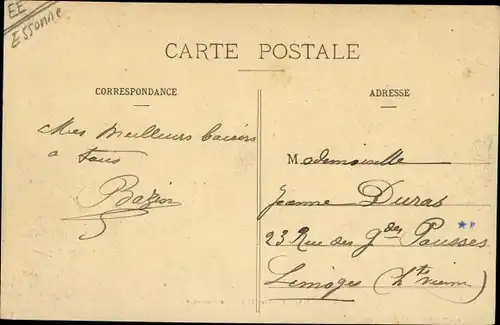 EE
Essonne
CARTE POSTALE
CORRESPONDANCE
Mes Meilleurs baisers
a tous
Bazin
ADRESSE
Mademoiselle
Jeanne Duras
23 Rue des gdes Pousses
Limoges (hte vienne)